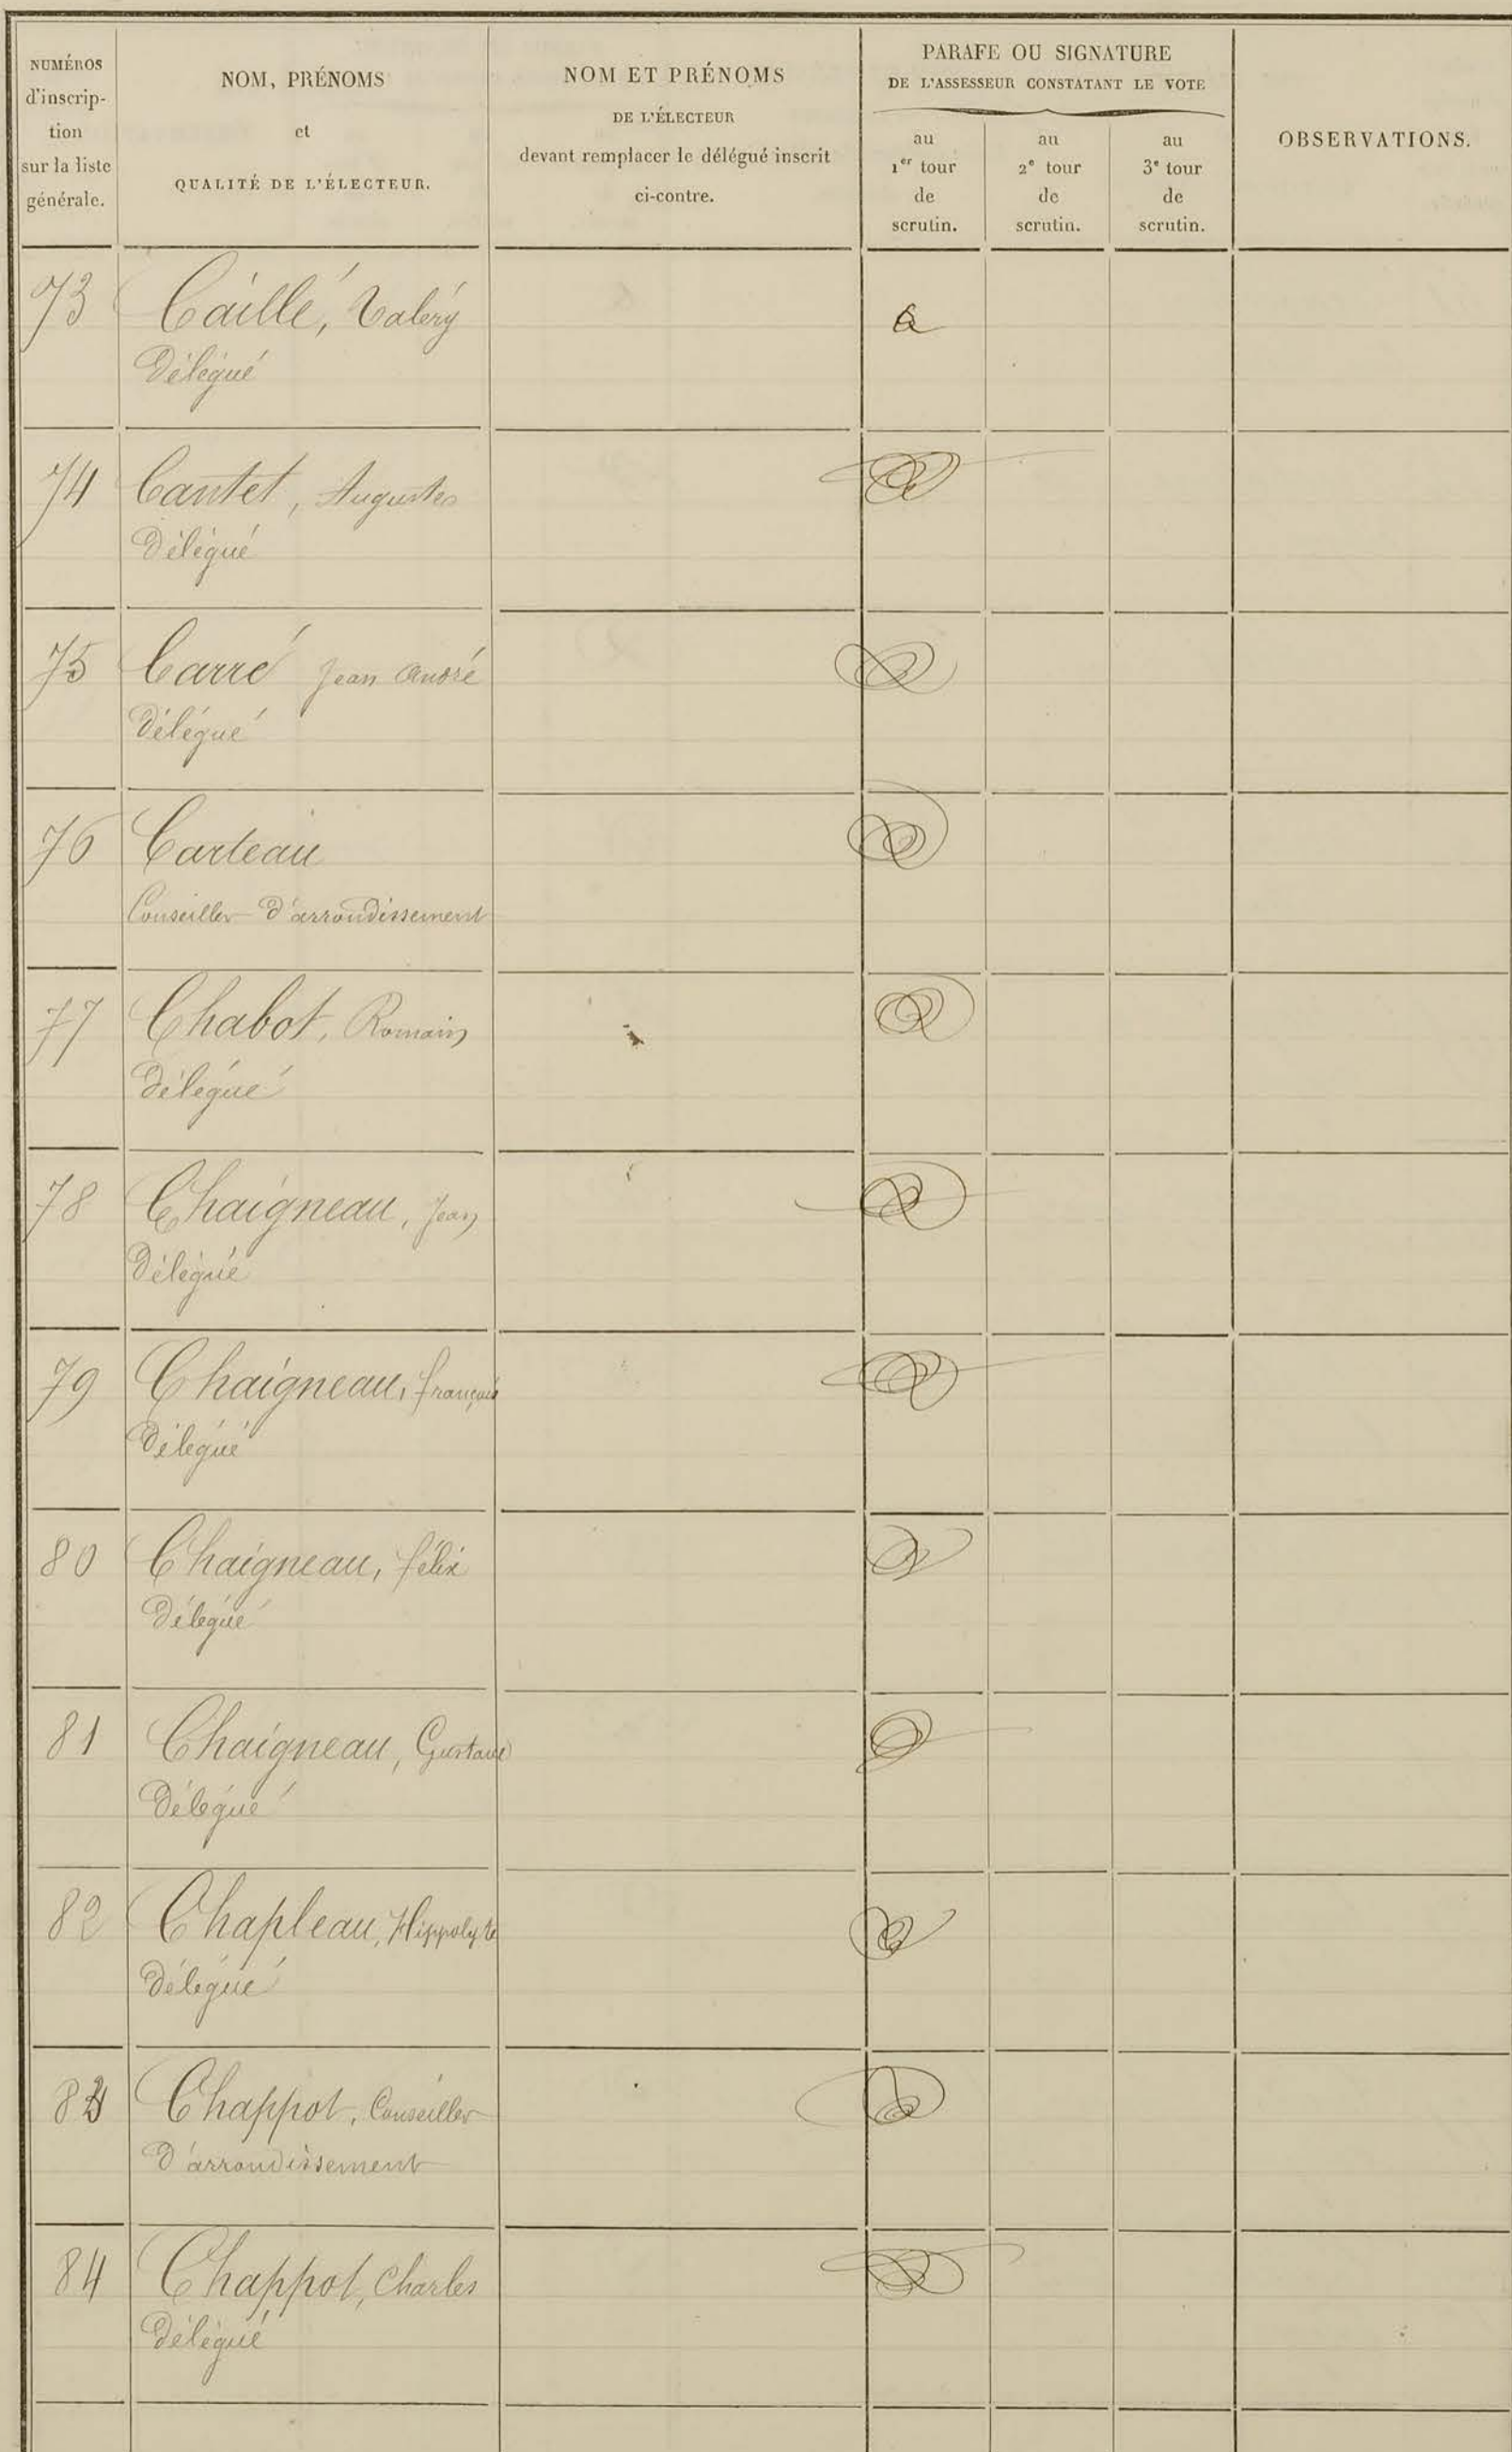 NUMÉROS
d'inscrip-
tion
sur la liste
générale.
NOM, PRÉNOMS
et
QUALITÉ DE L'ÉLECTEUR.
NOM ET PRÉNOMS
DE L'ÉLECTEUR
devant remplacer le délégué inscrit
ci-contre.
PARAFE OU SIGNATURE
DE L'ASSESSEUR CONSTATANT LE VOTE
au
1er tour
de
scrutin.
au
2e tour
de
scrutin.
au
3e tour
de
scrutin.
OBSERVATIONS.
73 Caillé, Valéry
Délégué
74 Cantet, Auguste
Délégué
75 Carré Jean André
Délégué
76 Carteau
Conseiller d'arrondissement
77 Chabot, Romain
Délégué
78 Chaigneau, Jean
Délégué
79 Chaigneau, françois
Délégué
80 Chaigneau, félix
Délégué
81 Chaigneau, Gustave
Délégué
82 Chapleau, Hippolyte
Délégué
83 Chappot, Conseiller
d'arrondissement
84 Chappot, Charles
Délégué